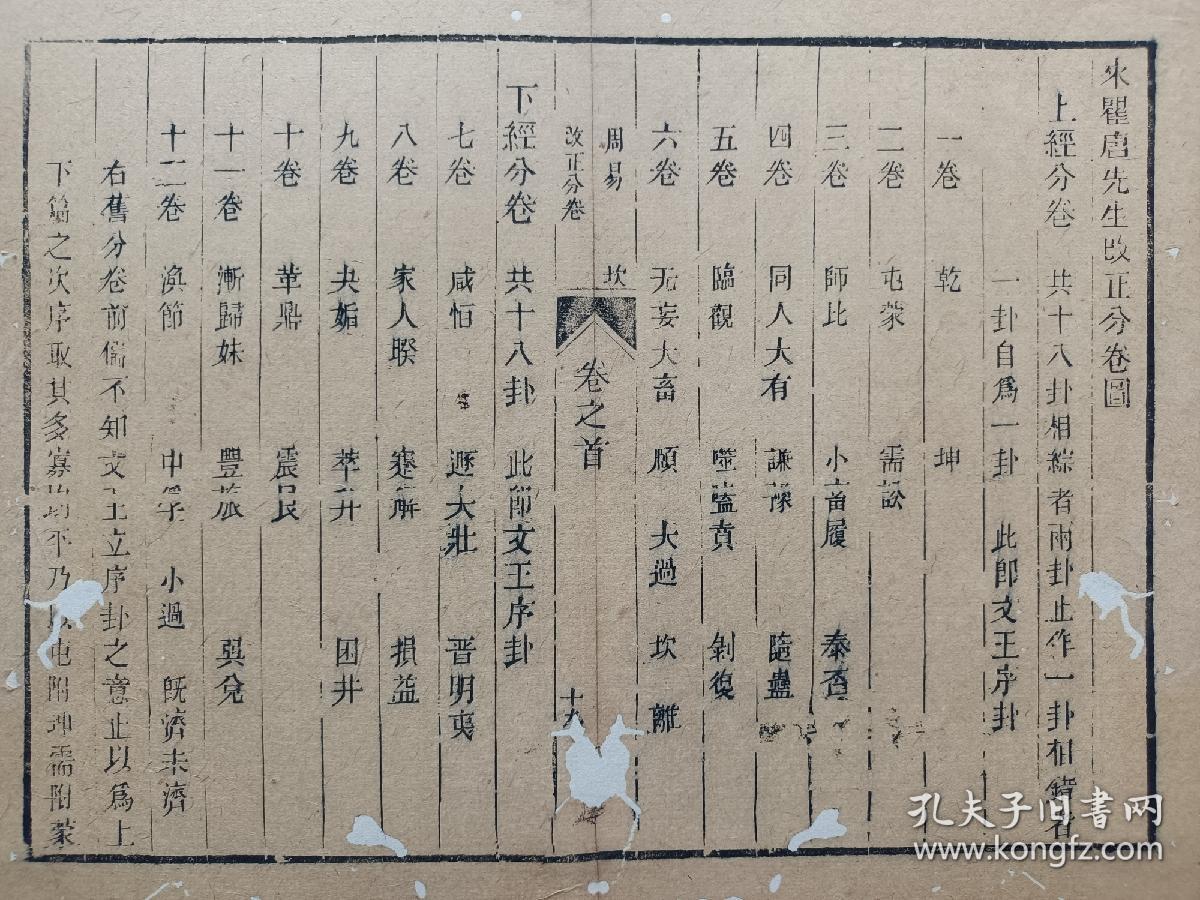 來瞿唐先生改正分卷圖
上經分卷 共十八卦相綜者兩卦止作一卦相錯者
一卦自爲一卦 此卽文王序卦
一卷 乾 坤
二卷 屯蒙 需訟
三卷 師比 小畜履 泰否
四卷 同人大有 謙豫 隨蠱
五卷 臨觀 噬嗑賁 剝復
六卷 无妄大畜 頤 大過 坎 離
周易 坎
改正分卷 卷之首 十九
下經分卷 共十八卦 此卽文王序卦
七卷 咸恒 遯大壯 晋明夷
八卷 家人睽 蹇解 損益
九卷 夬姤 萃升 困井
十卷 革鼎 震艮
十一卷 漸歸妹 豐旅 巽兌
十二卷 渙節 中孚 小過 旣濟未濟
右舊分卷前儒不知文王立序卦之意止以爲上
下篇之次序取其多寡均平乃以屯附坤需附蒙
孔夫子旧书网
www.kongfz.com